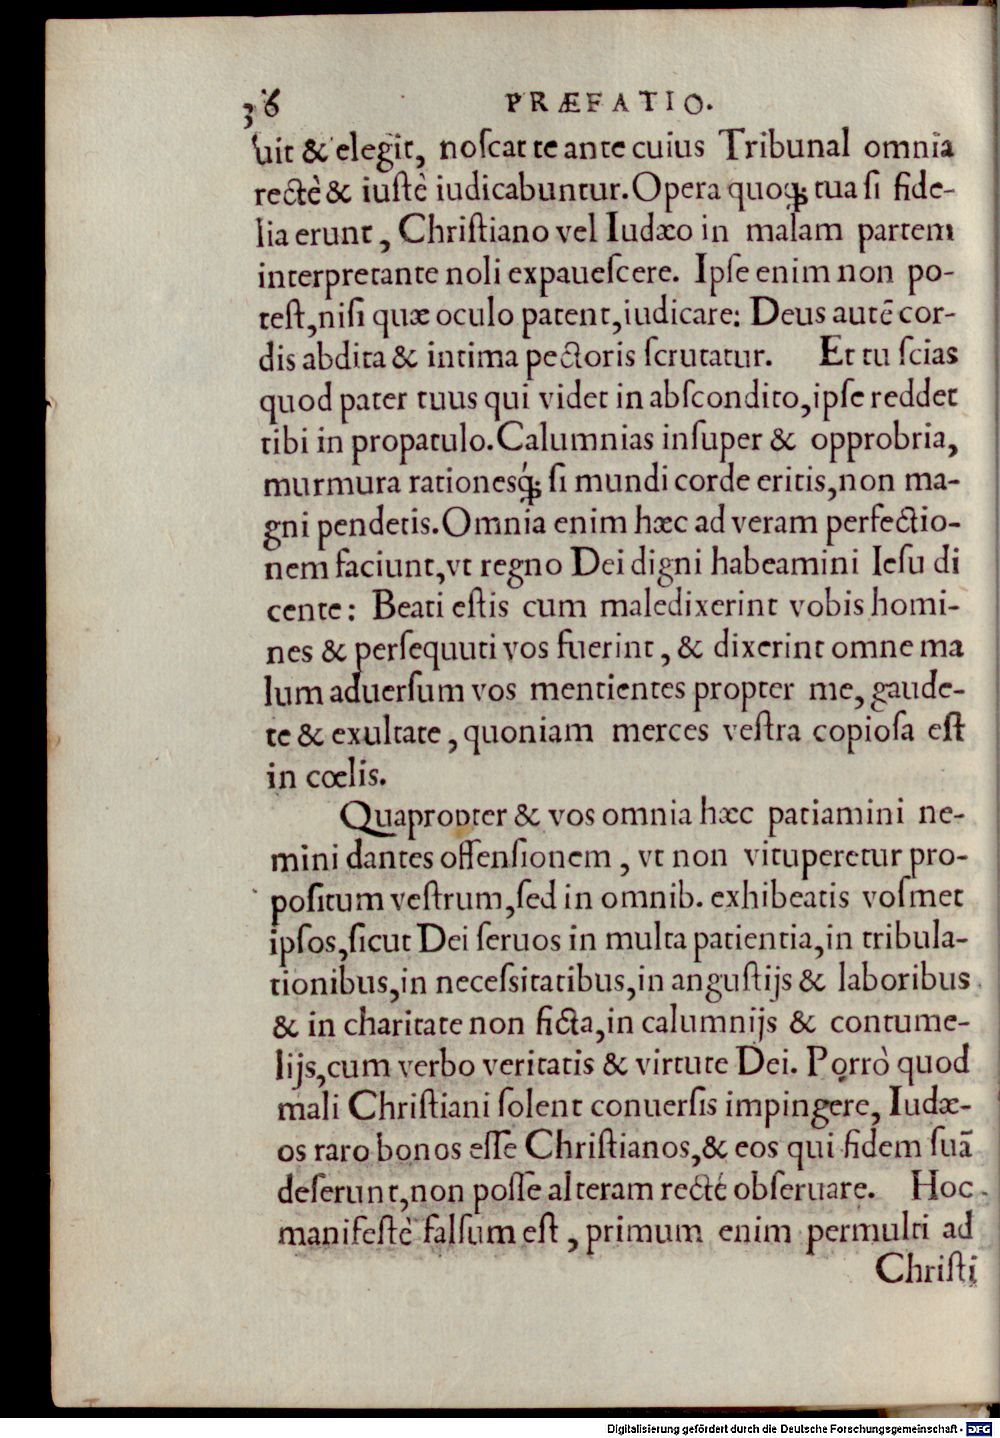 36 PRÆFATIO.
uit & elegit, noſcat te ante cuius Tribunal omnia
rectè & iuſtè iudicabuntur. Opera quoq; tua ſi fide-
lia erunt, Chriſtiano vel Iudæo in malam partem
interpretante noli expaueſcere. Ipſe enim non po-
teſt, niſi quæ oculo patent, iudicare: Deus autē cor-
dis abdita & intima pectoris ſcrutatur. Et tu ſcias
quod pater tuus qui videt in abſcondito, ipſe reddet
tibi in propatulo. Calumnias inſuper & opprobria,
murmura rationesq́; ſi mundi corde eritis, non ma-
gni pendetis. Omnia enim hæc ad veram perfectio-
nem faciunt, vt regno Dei digni habeamini Ieſu di
cente: Beati eſtis cum maledixerint vobis homi-
nes & perſequuti vos fuerint, & dixerint omne ma
lum aduerſum vos mentientes propter me, gaude-
te & exultate, quoniam merces veſtra copioſa eſt
in cœlis.
Quapropter & vos omnia hæc patiamini ne-
mini dantes offenſionem, vt non vituperetur pro-
poſitum veſtrum, ſed in omnib. exhibeatis voſmet
ipſos, ſicut Dei ſeruos in multa patientia, in tribula-
tionibus, in neceſsitatibus, in anguſtijs & laboribus
& in charitate non ficta, in calumnijs & contume-
lijs, cum verbo veritatis & virtute Dei. Porrò quod
mali Chriſtiani ſolent conuerſis impingere, Iudæ-
os raro bonos eſſe Chriſtianos, & eos qui fidem ſuā
deſerunt, non poſſe alteram recté obſeruare. Hoc
manifeſtè falſum eſt, primum enim permulti ad
Chriſti
Digitalisierung gefördert durch die Deutsche Forschungsgemeinschaft - DFG